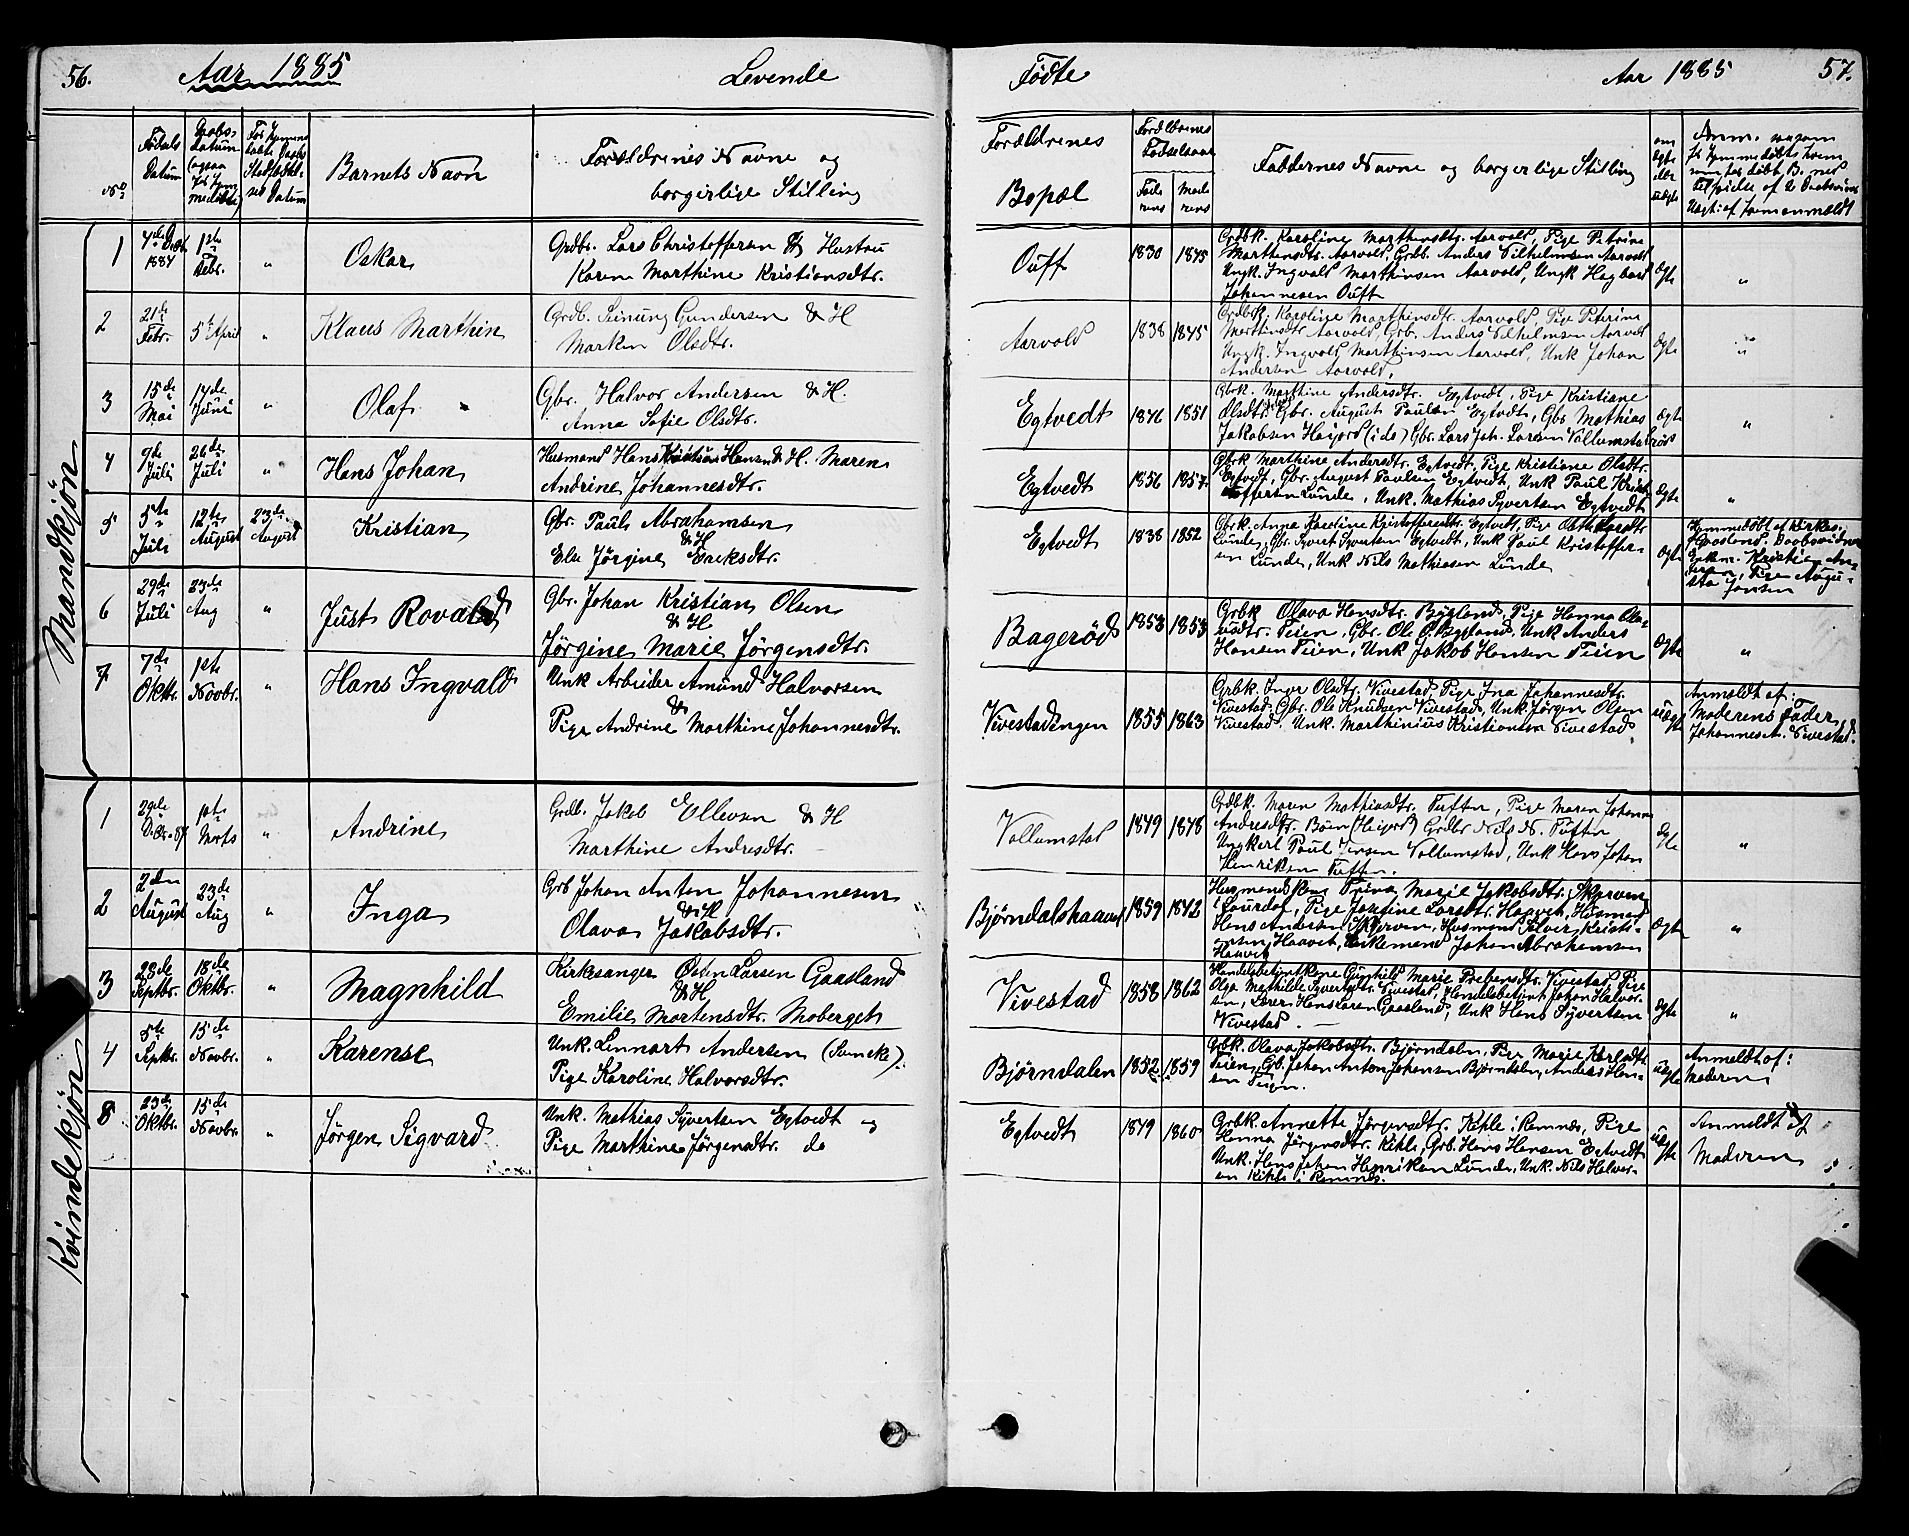 56. Aar 1885 Levende
No
Fødsels Datum
Barnets Navn
Forældrenes Navne og borgerlige Stilling
Mandkjøn
1 4de Decbr. 1884 1ste Febr. " Oskar Grdbr. Lars Christoffersen & Hustru
Karen Marthine Kristiansdtr.
2 21de Febr. 5te April " Klaus Marthin Grdb. Gundersen & H
Olsdtr.
3 15de Mai 14de Juni " Olaf Gbr. Halvor Andersen & H.
Anna Sofie Olsdtr.
4 9de Juli 26de Juli " Hans Johan Husmand Hans Kristian Hansen & H. Maren
Andrine Johannesdtr.
5 5te Juli 12te August 23de August Kristian Gbr. Paul Abrahamsen
& H
Else Jørgine Eriksdtr.
6 29de Juli 23de Aug " Just Rovald Gbr. Johan Kristian Olsen
& H
Jørgine Marie Jørgensdtr.
7 7de Oktbr. 1ste Novbr. " Hans Ingvald Unk Arbeider Amund Halvorsen
&
Pige Andrine Marthine Johannesdtr.
Kvindekjøn
1 29de 1ste Marts " Andrine Grdb. Jakob Ellevsen & H
Marthine Andresdtr.
2 2den August 23de Aug " Inga Grb Johan Anton Johannesen
& H
Olava Jakobsdtr.
3 28de Septbr. 18de Oktbr. " Magnhild Kirkesanger Østen Larsen Gaasland
& H
Emilie Mortensdtr. Moberget
4 5te Septbr. 15de Novbr. " Karense Unk. Lennart Andersen (Svenske).
Pige Karoline Halvorsdtr.
8 23de Oktbr. 15de Novbr. " Jørgen Sigvard Unk. Mathias Syvertsen Egtvedt og
Pige Marthine Jørgensdtr. do
Fødte Aar 1885 57.
Forældrenes Bopæl
Forældrenes Fødselsaar
Faderens Moderens
Faddernes Navne og borgerlige Stilling
om ægte eller uægte
Ouff 1830 1845 Grdbk. Karoline Marthinsdtr. Aarvold, Pige Petrine
Marthinsdtr. Aarvold, Grdb. Anders Vilhelmsen Aarvold
Ungk. Ingvald Marthinsen Aarvold, Ungk Hagbart
Johannesen Ouff ægte "
Aarvold 1838 1845 Grdbk. Karoline Marthinsdtr. Aarvold, Pige Petrine
Marthinsdtr Aarvold, Grb. Anders Vilhelmsen Aarvold
Ungk. Ingvald Marthinsen Aarvold, Unk Johan
Andersen Aarvold, ægte "
Egtvedt 1846 1851 Gbrk. Marthine Andersdtr. Egtvedt, Pige Kristiane
Olsdtr. Gbr. August Paulsen Egtvedt, Gbr Mathias
Jakobsen Gbr. Lars Joh. Larsen Vollumstad ægte "
Egtvedt 1856 1857 Gbrk Marthine Andersdtr. Egtvedt, Pige Kristiane Olsdtr.
Egtvedt, Gbr. August Paulsen Egtvedt, Unk Paul Krist
offersen Lunde, Unk. Mathias Syvertsen Egtvedt ægte "
Egtvedt 1838 1852 Gbrk. Anna Karoline Kristoffersdtr. Egtvedt, Pige
Lunde, Gbr. Syvert Syvertsen Egtvedt, Unk Paul Kristoffer-
sen Lunde, Unk Nils Mathiasen Lunde ægte
Hjemmedøbt af Kirkes.
Gaasland. Daabsvidner
Enkem. Kristian An-
dersen, Pige Augu-
sta Jansen
Bagerød 1853 1853 Grbk Olava Hansdtr. Bygland, Pige Hanna Ole-
usdtr. Feien, Gbr. Ole O. Bygland, Unk Anders
Hansen Feien, Unk Jakob Hansen Feien ægte "
Vivestadengen 1855 1863 Grbk. Inger Olsdtr. Vivestad, Pige Ina Johannesdtr.
Vivestad, Gbr. Ole Knudsen Vivestad, Unk Jørgen Olsen
Vivestad. Unk. Marthinius Kristiansen Vivestad uægte
Anmeldt af:
Moderens Fader
Johannes A. Vivestad.
Vollumstad 1849 1848 Grdbk. Maren Mathiasdtr. Tuften, Pige Maren Johanne
Andresdtr. Bøen Grdbr Nils N. Tuften
Ungkarl Paul Jensen Vollumstad, Unk Hans Johan
Henriksen Tuften. ægte "
Bjørndalshaaven 1859 1842 Husmandskone Trine Marie Jakobsdtr. Skjerven
Pige Josefine Larsdtr. Haavet, Husmand
Hans Andersen Skjerven, Husmand Kristi-
ansen Haavet, Enkemand Johan Abrahamsen
Haavet ægte "
Vivestad 1858 1862 Handelsbetjentkone Gunhild Marie Prebensdtr. Vivestad, Pige
Olga Mathilde Syvertsdtr. Vivestad, Handelsbetjent Johan Halvor-
sen, Lærer Hans Larsen Gaasland, Unk Hans Syvertsen
Vivestad. ægte "
Bjørndalen 1852 1859 Grbk. Olava Jakobsdtr. Bjørndalen, Pige Marie Karlsdtr.
Feien, Gb. Johan Anton Johansen Bjørndalen, Anders Han-
sen Feien. uægte
Anmeldt af:
Moderen
Egtvedt 1849 1860 Grbk. Annette Jørgensdtr. Kihle i Ramnæs, Pige
Hanna Jørgensdtr. Kihle, Grb. Hans Hansen Egtvedt
Unk. Hans Johan Henriksen Lunde, Unk. Nils Halvor-
sen Kihle i Ramnes. uægte
Anmeldt af
Moderen